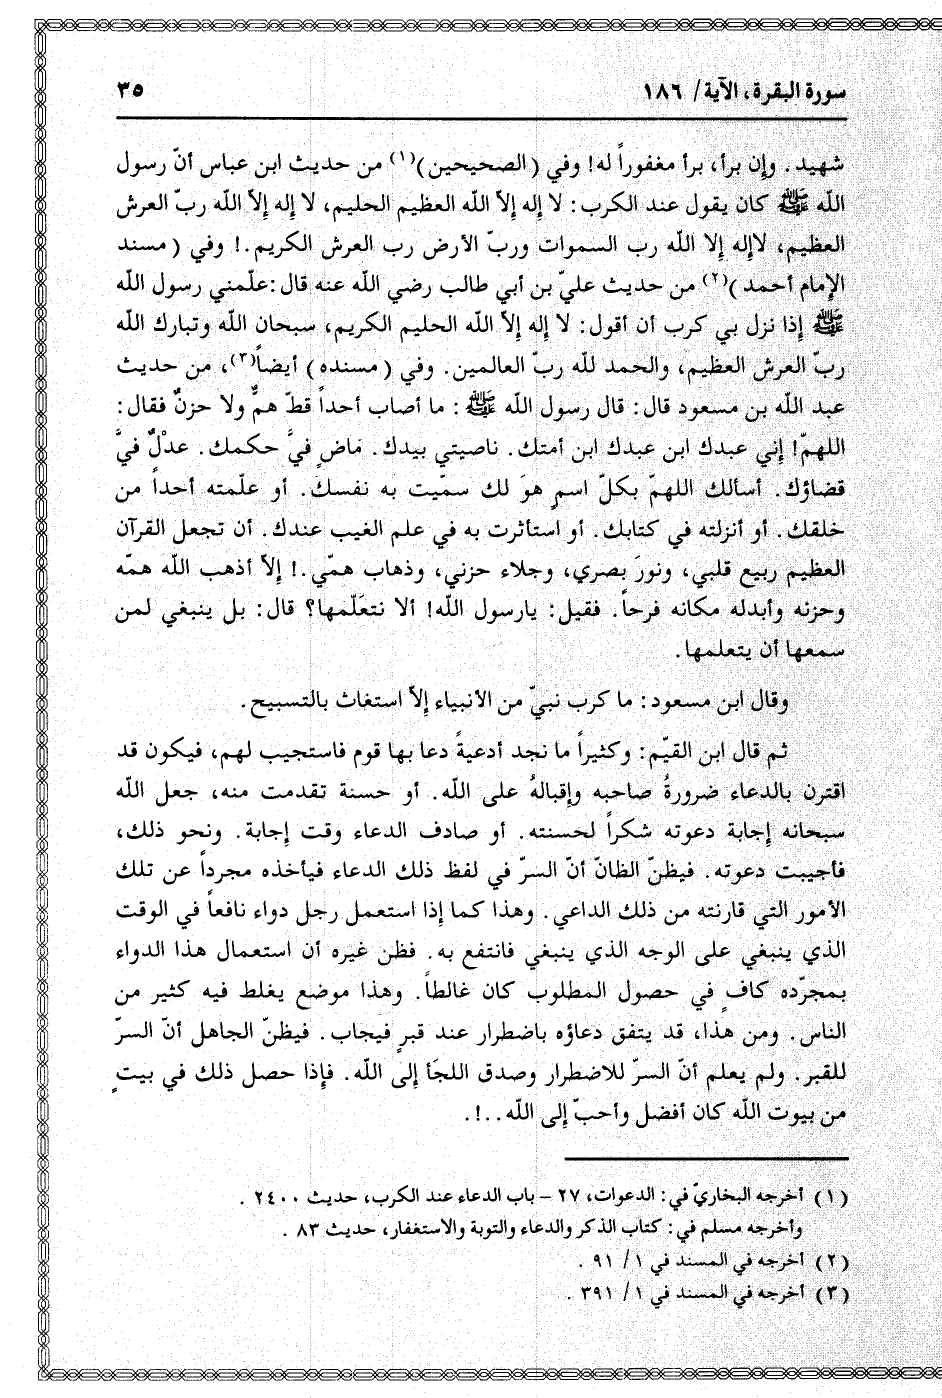 سورة البقرة، الآية/ ١٨٦
٣٥
شهيد. وإن برأ، برأ مغفوراً له! وفي (الصحيحين)(١) من حديث ابن عباس أنّ رسول
الله ﷺ كان يقول عند الكرب: لا إله إلاّ الله العظيم الحليم، لا إله إلاّ الله ربّ العرش
العظيم، لاإله إلا الله رب السموات وربّ الأرض رب العرش الكريم.! وفي (مسند
الإمام أحمد)(٢) من حديث عليّ بن أبي طالب رضي الله عنه قال:علّمني رسول الله
ﷺ إذا نزل بي كرب أن أقول: لا إله إلاّ الله الحليم الكريم، سبحان الله وتبارك الله
ربّ العرش العظيم، والحمد لله ربّ العالمين. وفي (مسنده) أيضاً(٣)، من حديث
عبد الله بن مسعود قال: قال رسول الله ﷺ: ما أصاب أحداً قطّ همٌّ ولا حزنٌ فقال:
اللهمّ! إني عبدك ابن عبدك ابن أمتك. ناصيتي بيدك. مَاضٍ فيَّ حكمك. عدْلٌ فيَّ
قضاؤك. أسألك اللهمّ بكلّ اسمٍ هوَ لك سمّيت به نفسك. أو علّمته أحداً من
خلقك. أو أنزلته في كتابك. أو استأثرت به في علم الغيب عندك. أن تجعل القرآن
العظيم ربيع قلبي، ونورَ بصري، وجلاء حزني، وذهاب همّي.! إلاّ أذهب الله همّه
وحزنه وأبدله مكانه فرحاً. فقيل: يارسول الله! ألا نتعَلّمها؟ قال: بل ينبغي لمن
سمعها أن يتعلمها.
وقال ابن مسعود: ما كرب نبيّ من الأنبياء إلاّ استغاث بالتسبيح.
ثم قال ابن القيّم: وكثيراً ما نجد أدعيةً دعا بها قوم فاستجيب لهم، فيكون قد
اقترن بالدعاء ضرورةُ صاحبه وإقبالهُ على الله. أو حسنة تقدمت منه، جعل الله
سبحانه إجابة دعوته شكراً لحسنته. أو صادف الدعاء وقت إجابة. ونحو ذلك،
فأجيبت دعوته. فيظنّ الظانّ أنّ السرّ في لفظ ذلك الدعاء فيأخذه مجرداً عن تلك
الأمور التي قارنته من ذلك الداعي. وهذا كما إذا استعمل رجل دواء نافعاً في الوقت
الذي ينبغي على الوجه الذي ينبغي فانتفع به. فظن غيره أن استعمال هذا الدواء
بمجرّده كافٍ في حصول المطلوب كان غالطاً. وهذا موضع يغلط فيه كثير من
الناس. ومن هذا، قد يتفق دعاؤه باضطرار عند قبرٍ فيجاب. فيظنّ الجاهل أنّ السرّ
للقبر. ولم يعلم أنّ السرّ للاضطرار وصدق اللجَأ إلى الله. فإذا حصل ذلك في بيتٍ
من بيوت الله كان أفضل وأحبّ إلى الله..!.
(١) أخرجه البخاريّ في: الدعوات، ٢٧ – باب الدعاء عند الكرب، حديث ٢٤٠٠.
وأخرجه مسلم في: كتاب الذكر والدعاء والتوبة والاستغفار، حديث ٨٣.
(٢) أخرجه في المسند في ١/ ٩١.
(٣) أخرجه في المسند في ١/ ٣٩١.